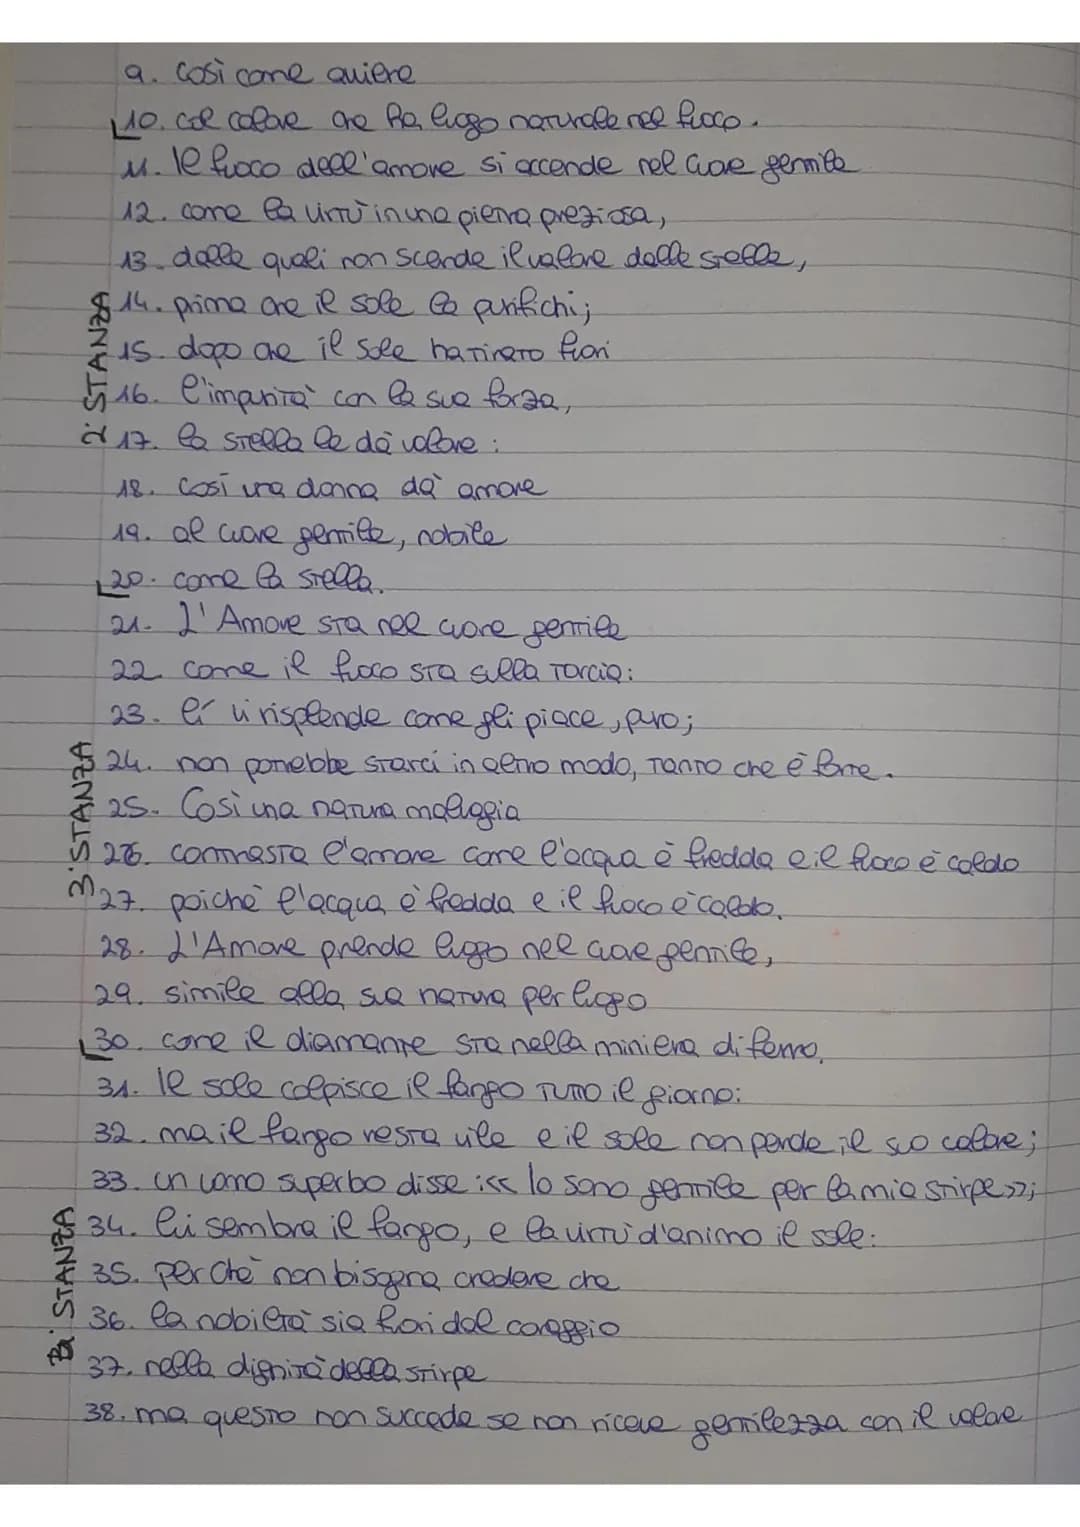 9. Così come avviene
10. col calore che ha luogo naturale nel fuoco.
11. Il fuoco dell'amore si accende nel cuore gentile
12. come la virtù in una pietra preziosa,
13. dalle quali non scende il valore dalle stelle,
14. prima che il sole la purifichi;
15. dopo che il sole ha tirato fuori
16. l'impurità con la sua forza,
17. la stella le dà valore:
18. Così una donna dà amore
19. al cuore gentile, nobile
20. come la stella.
2ª STANZA
21. L'Amore sta nel cuore gentile
22. come il fuoco sta sulla torcia:
23. lì vi risplende come gli piace, puro;
24. non potrebbe starci in altro modo, tanto che è forte.
25. Così una natura malvagia
26. contrasta l'amore come l'acqua è fredda e il fuoco è caldo
27. poiché l'acqua è fredda e il fuoco è caldo.
28. L'Amore prende luogo nel cuore gentile,
29. simile alla sua natura per luogo
30. come il diamante sta nella miniera di ferro.
3ª STANZA
31. Il sole colpisce il fango tutto il giorno:
32. ma il fango resta vile e il sole non perde il suo calore;
33. un uomo superbo disse:<< Io sono gentile per la mia stirpe>>;
34. lui sembra il fango, e la virtù d'animo il sole:
35. perché non bisogna credere che
36. la nobiltà sia fuori dal coraggio
37. nella dignità della stirpe
38. ma questo non succede se non riceve gentilezza con il valore
STANZA